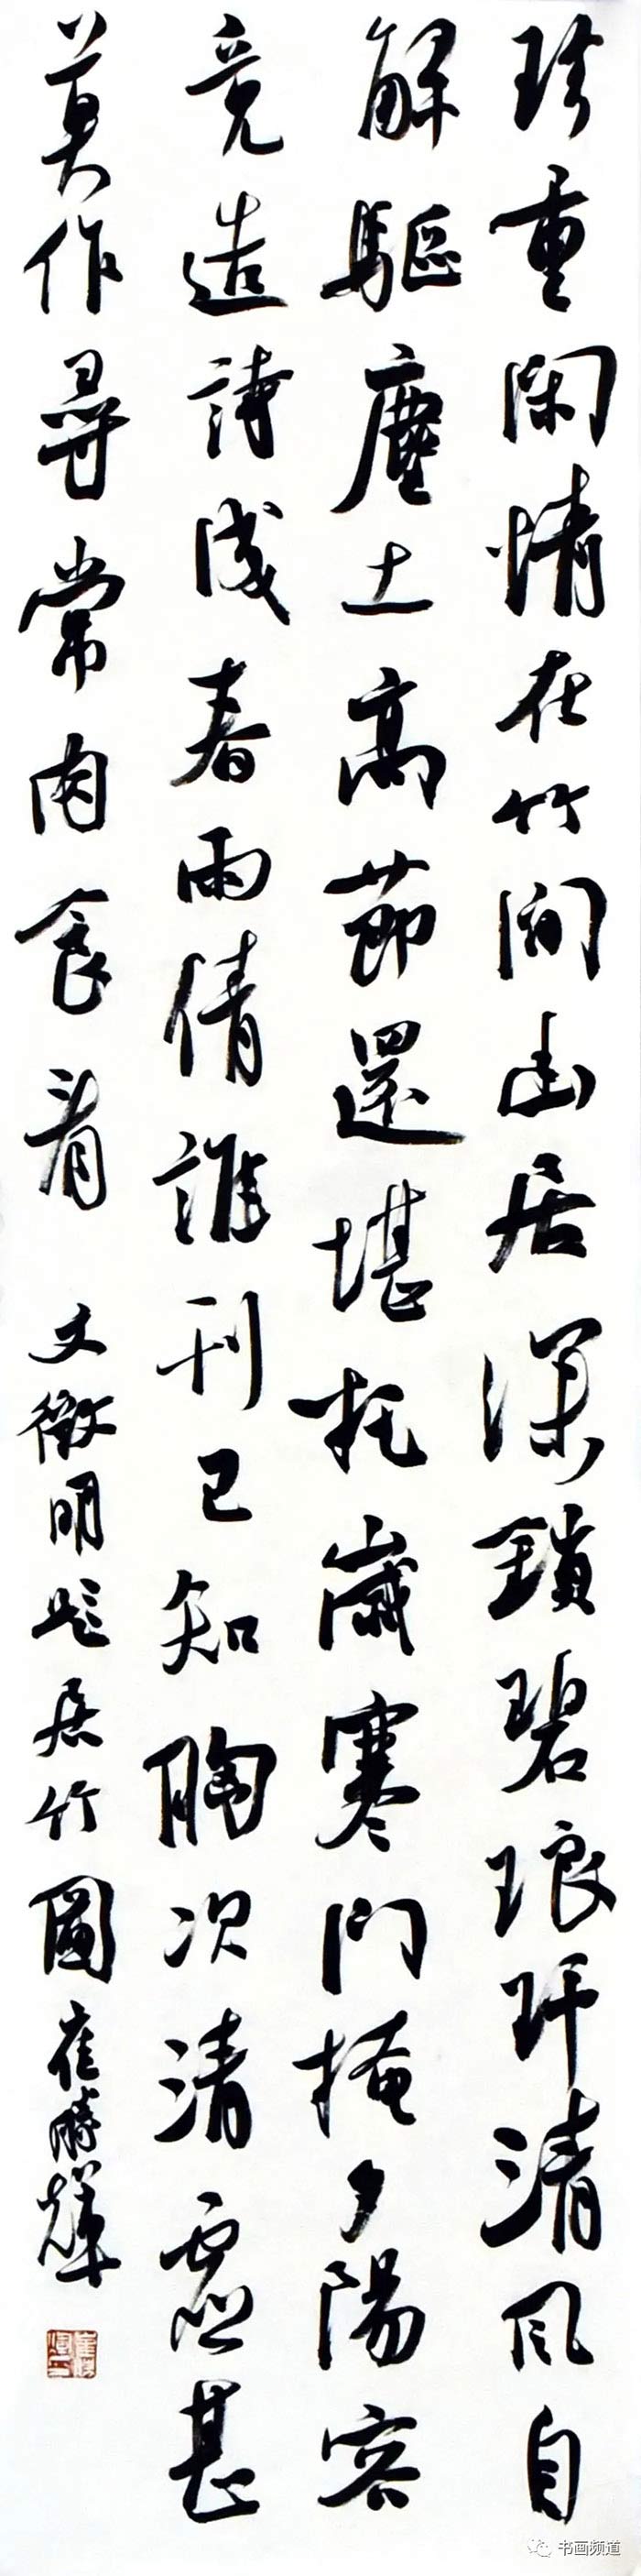 珍重閑情在竹間幽居深鎖碧琅玕清風自
解驅塵土高節還堪托歲寒門掩夕陽容
竟造詩成春雨倩誰刊已知胸次清虛甚
莫作尋常肉食看 文徵明題居竹圖 崔勝輝
书画频道